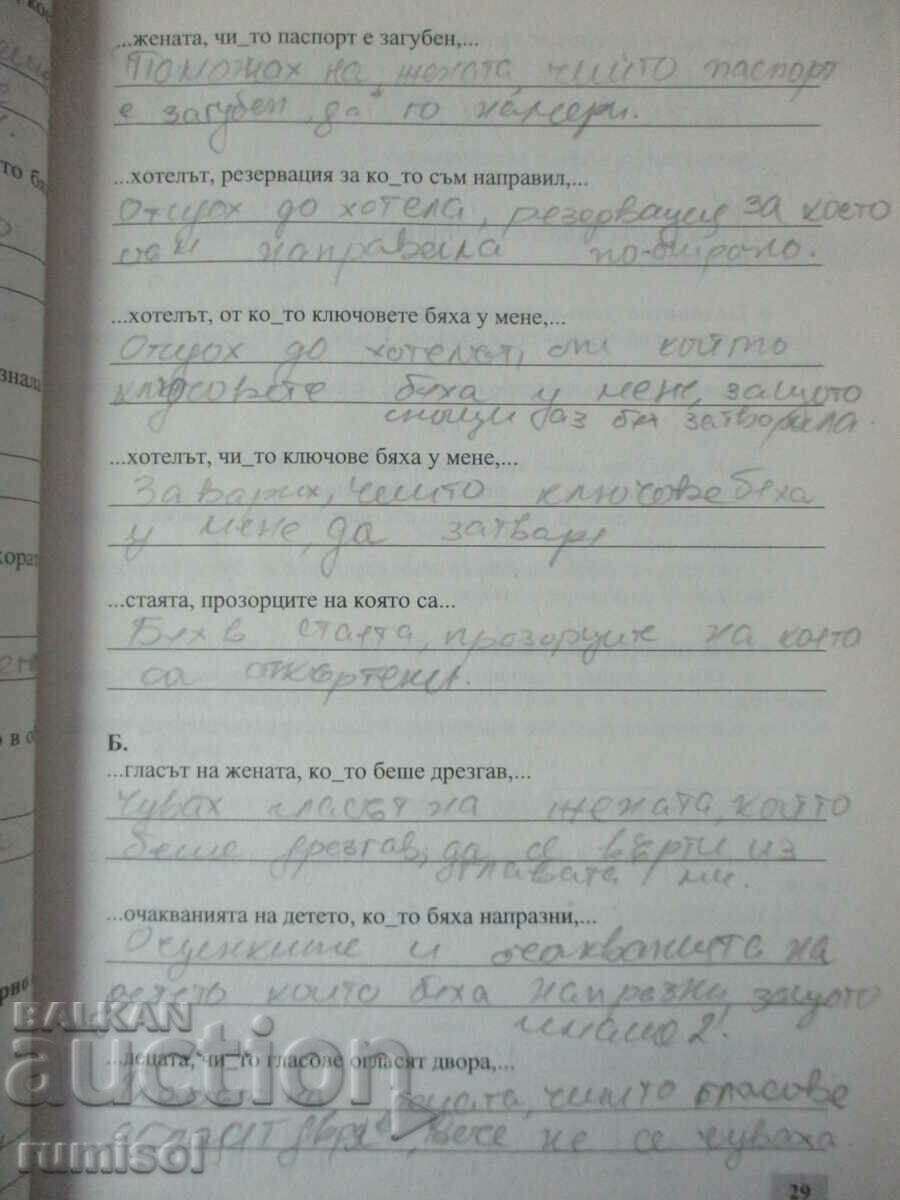 ...жената, чи_то паспорт е загубен,...
Поможах на жената, чийто паспорт
е загубен, да го намери.
...хотелът, резервация за ко_то съм направил,...
Отидох до хотела, резервация за което
съм направила по-отрано.
...хотелът, от ко_то ключовете бяха у мене,...
Отидох до хотелът, от който
ключовете бяха у мене, защото
снощи аз бях затворила.
...хотелът, чи_то ключове бяха у мене,...
чиито ключове бяха
у мене, да затваря
...стаята, прозорците на която са...
Бях в стаята, прозорците на която
са откъртени.
Б.
...гласът на жената, ко_то беше дрезгав,...
Чувах гласът на жената, който
беше дрезгав, да се върти из
главата ми.
...очакванията на детето, ко_то бяха напразни,...
Оценките и очакванията на
детето които бяха напразни, защото
имаше 2!
...децата, чи_то гласове огласят двора,...
децата, чиито гласове
огласят двора, вече не се чуваха
29
BALKAN
auction
rumisol
знала
хорат
о в об
рно
то бя